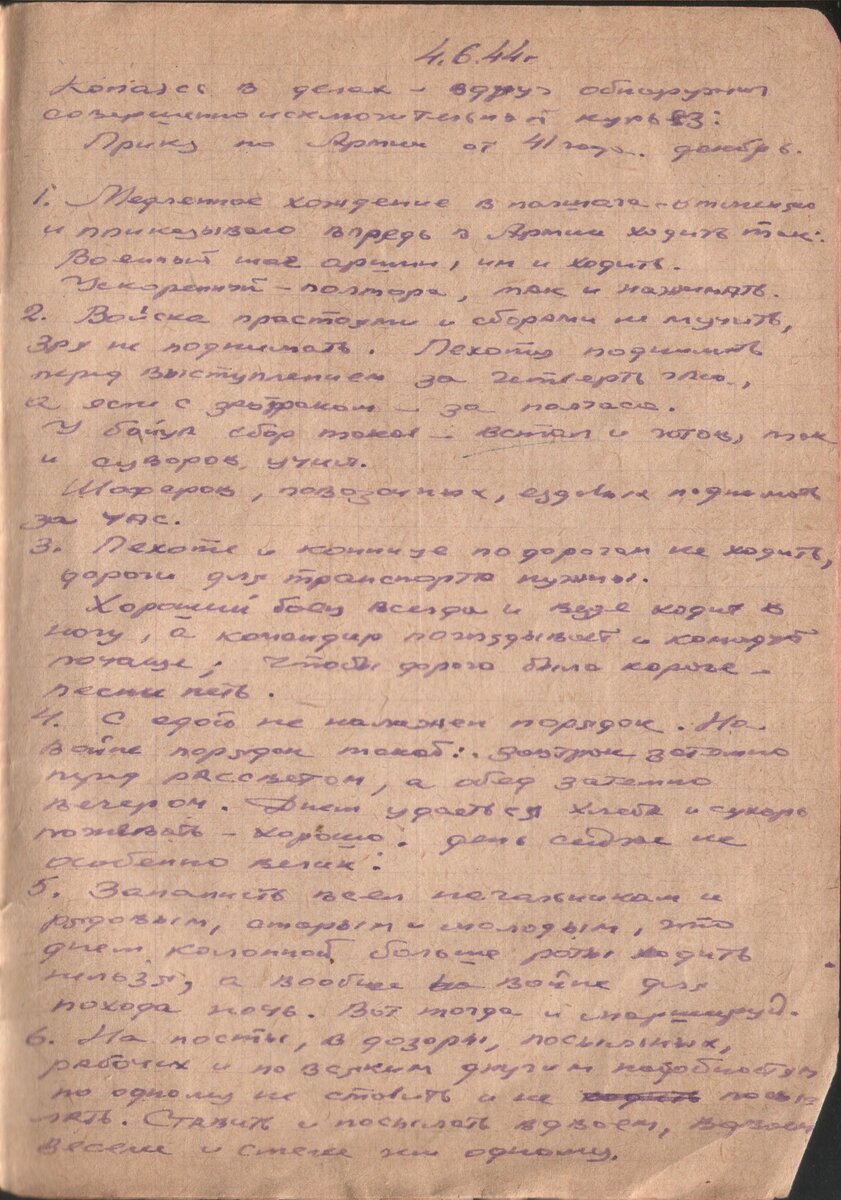 4.6.44г
Копаясь в делах – вдруг обнаружил
совершенно исключительный курьёз:
Приказ по Армии от 41 года. декабрь.
1. Медленное хождение в полшага – отменяю
и приказываю впредь в Армии ходить так:
Военный шаг аршин, им и ходить.
Ускоренный – полтора, так и нажимать.
2. Войска простоями и сборами не мучить,
зря не поднимать. Пехоту поднимать
перед выступлением за четверть часа,
а если с завтраком – за полчаса.
У бойца сбор такой – встал и готов, так
и Суворов учил.
Шоферов, повозочных, ездовых поднимать
за час.
3. Пехоте и коннице по дорогам не ходить,
дороги для транспорта нужны.
Хороший боец всегда и везде ходит в
ногу, а командир поглядывает и командует
почаще; чтобы дорога была короче –
песни петь.
4. С едой не налажен порядок. На
войне порядок такой: завтрак затемно
перед рассветом, а обед затемно
вечером. Днем удасться хлеба и сухарь
пожевать – хорошо. день сейчас не
особенно велик:
5. Запомнить всем начальникам и
рядовым, старым и молодым, что
днем колонной больше роты ходить
нельзя, а вообще на войне для
похода ночь. Вот тогда и маршируй.
6. На посты, в дозоры, посыльных,
рабочих и по всяким другим надобностям
по одному не ставить и не ходить посы
лать. Ставить и посылать вдвоем, вдвоем
веселей и смелей чем одному.